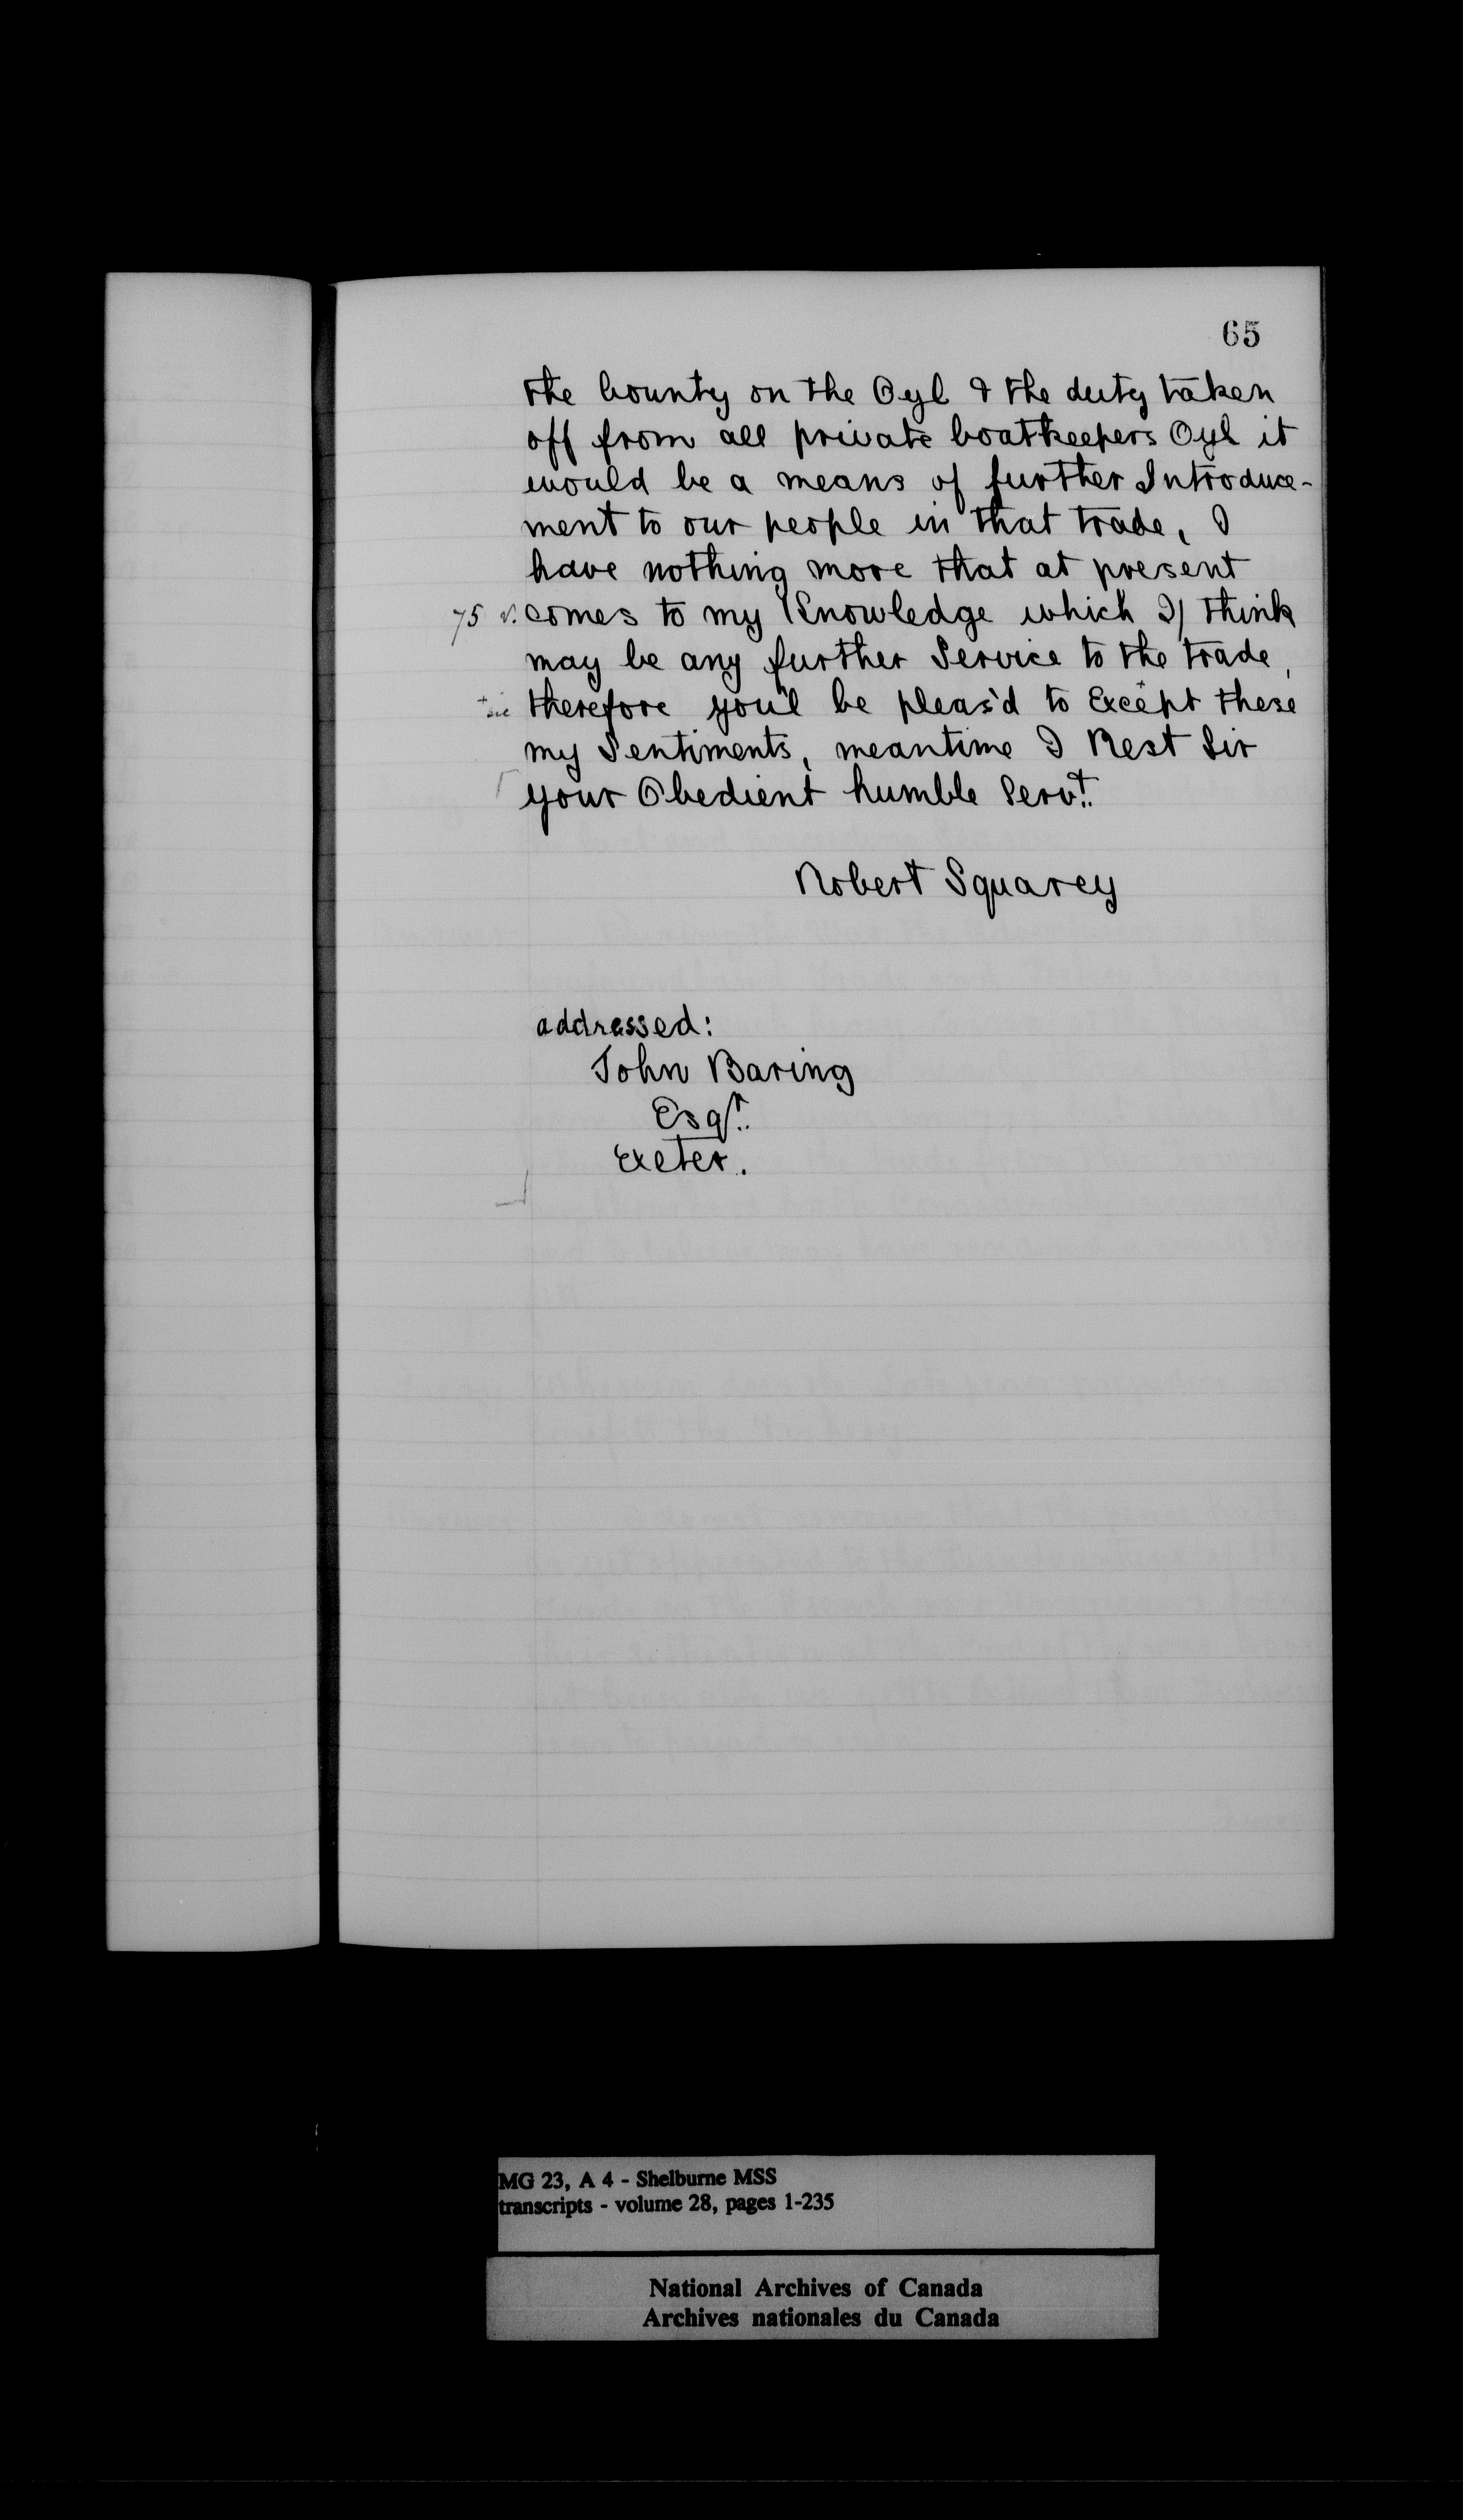 65
the bounty on the Oyl & the duty taken
off from all private boatkeepers Oyl it
would be a means of further Introduce-
ment to our people in that trade, I
have nothing more that at present
75 v. comes to my Knowledge which I/ think
may be any further Service to the trade,
+ sic therefore you'l be pleas'd to Except+ these
my Sentiments, meantime I Rest Sir
your Obedient humble Servt.
Robert Squarey
addressed:
John Baring
Esqr.
Exeter.
MG 23, A 4 - Shelburne MSS
transcripts - volume 28, pages 1-235
National Archives of Canada
Archives nationales du Canada